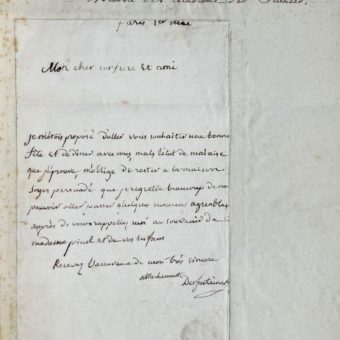 des Sciences.
paris 1er mai
Mon cher confrere Et ami
je m'étois proposé d'aller vous souhaiter une bonne
fête et de diner avec vous, mais l'état de malaise
que j'éprouve, m'oblige de rester a la maison.
soyez persuadé que je regrette beaucoup de ne
pouvoir aller passer quelques momens agreables
auprès de vous rappellez moi au souvenir de
madame pinel et de vos Enfans
Recevez l'assurance de mon très sincere
attachement
Desfontaines